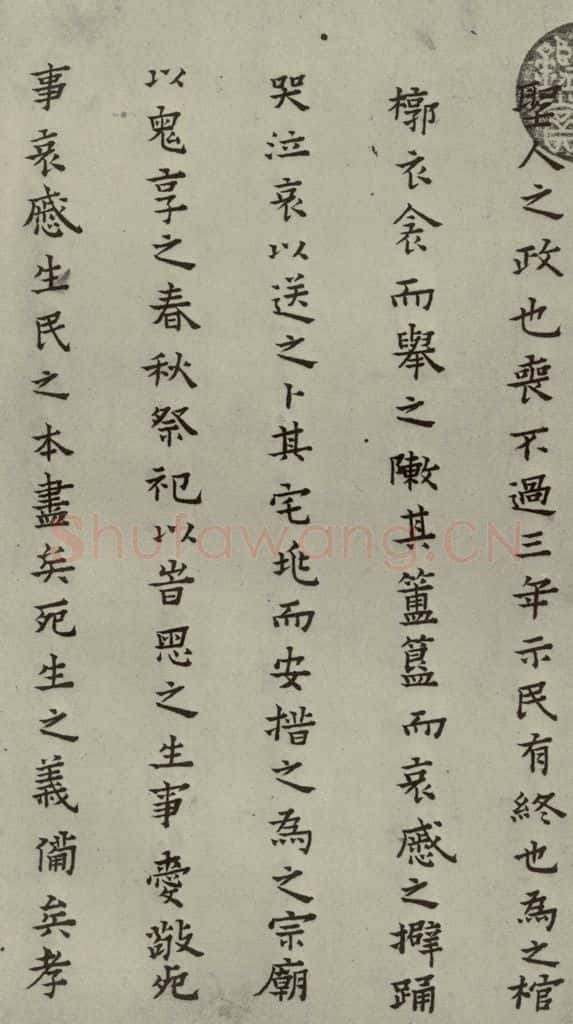 聖人之政也喪不過三年示民有終也為之棺
槨衣衾而舉之陳其簠簋而哀慼之擗踊
哭泣哀以送之卜其宅兆而安措之為之宗廟
以鬼享之春秋祭祀以旹思之生事愛敬死
事哀慼生民之本盡矣死生之義備矣孝
Shufawang.CN